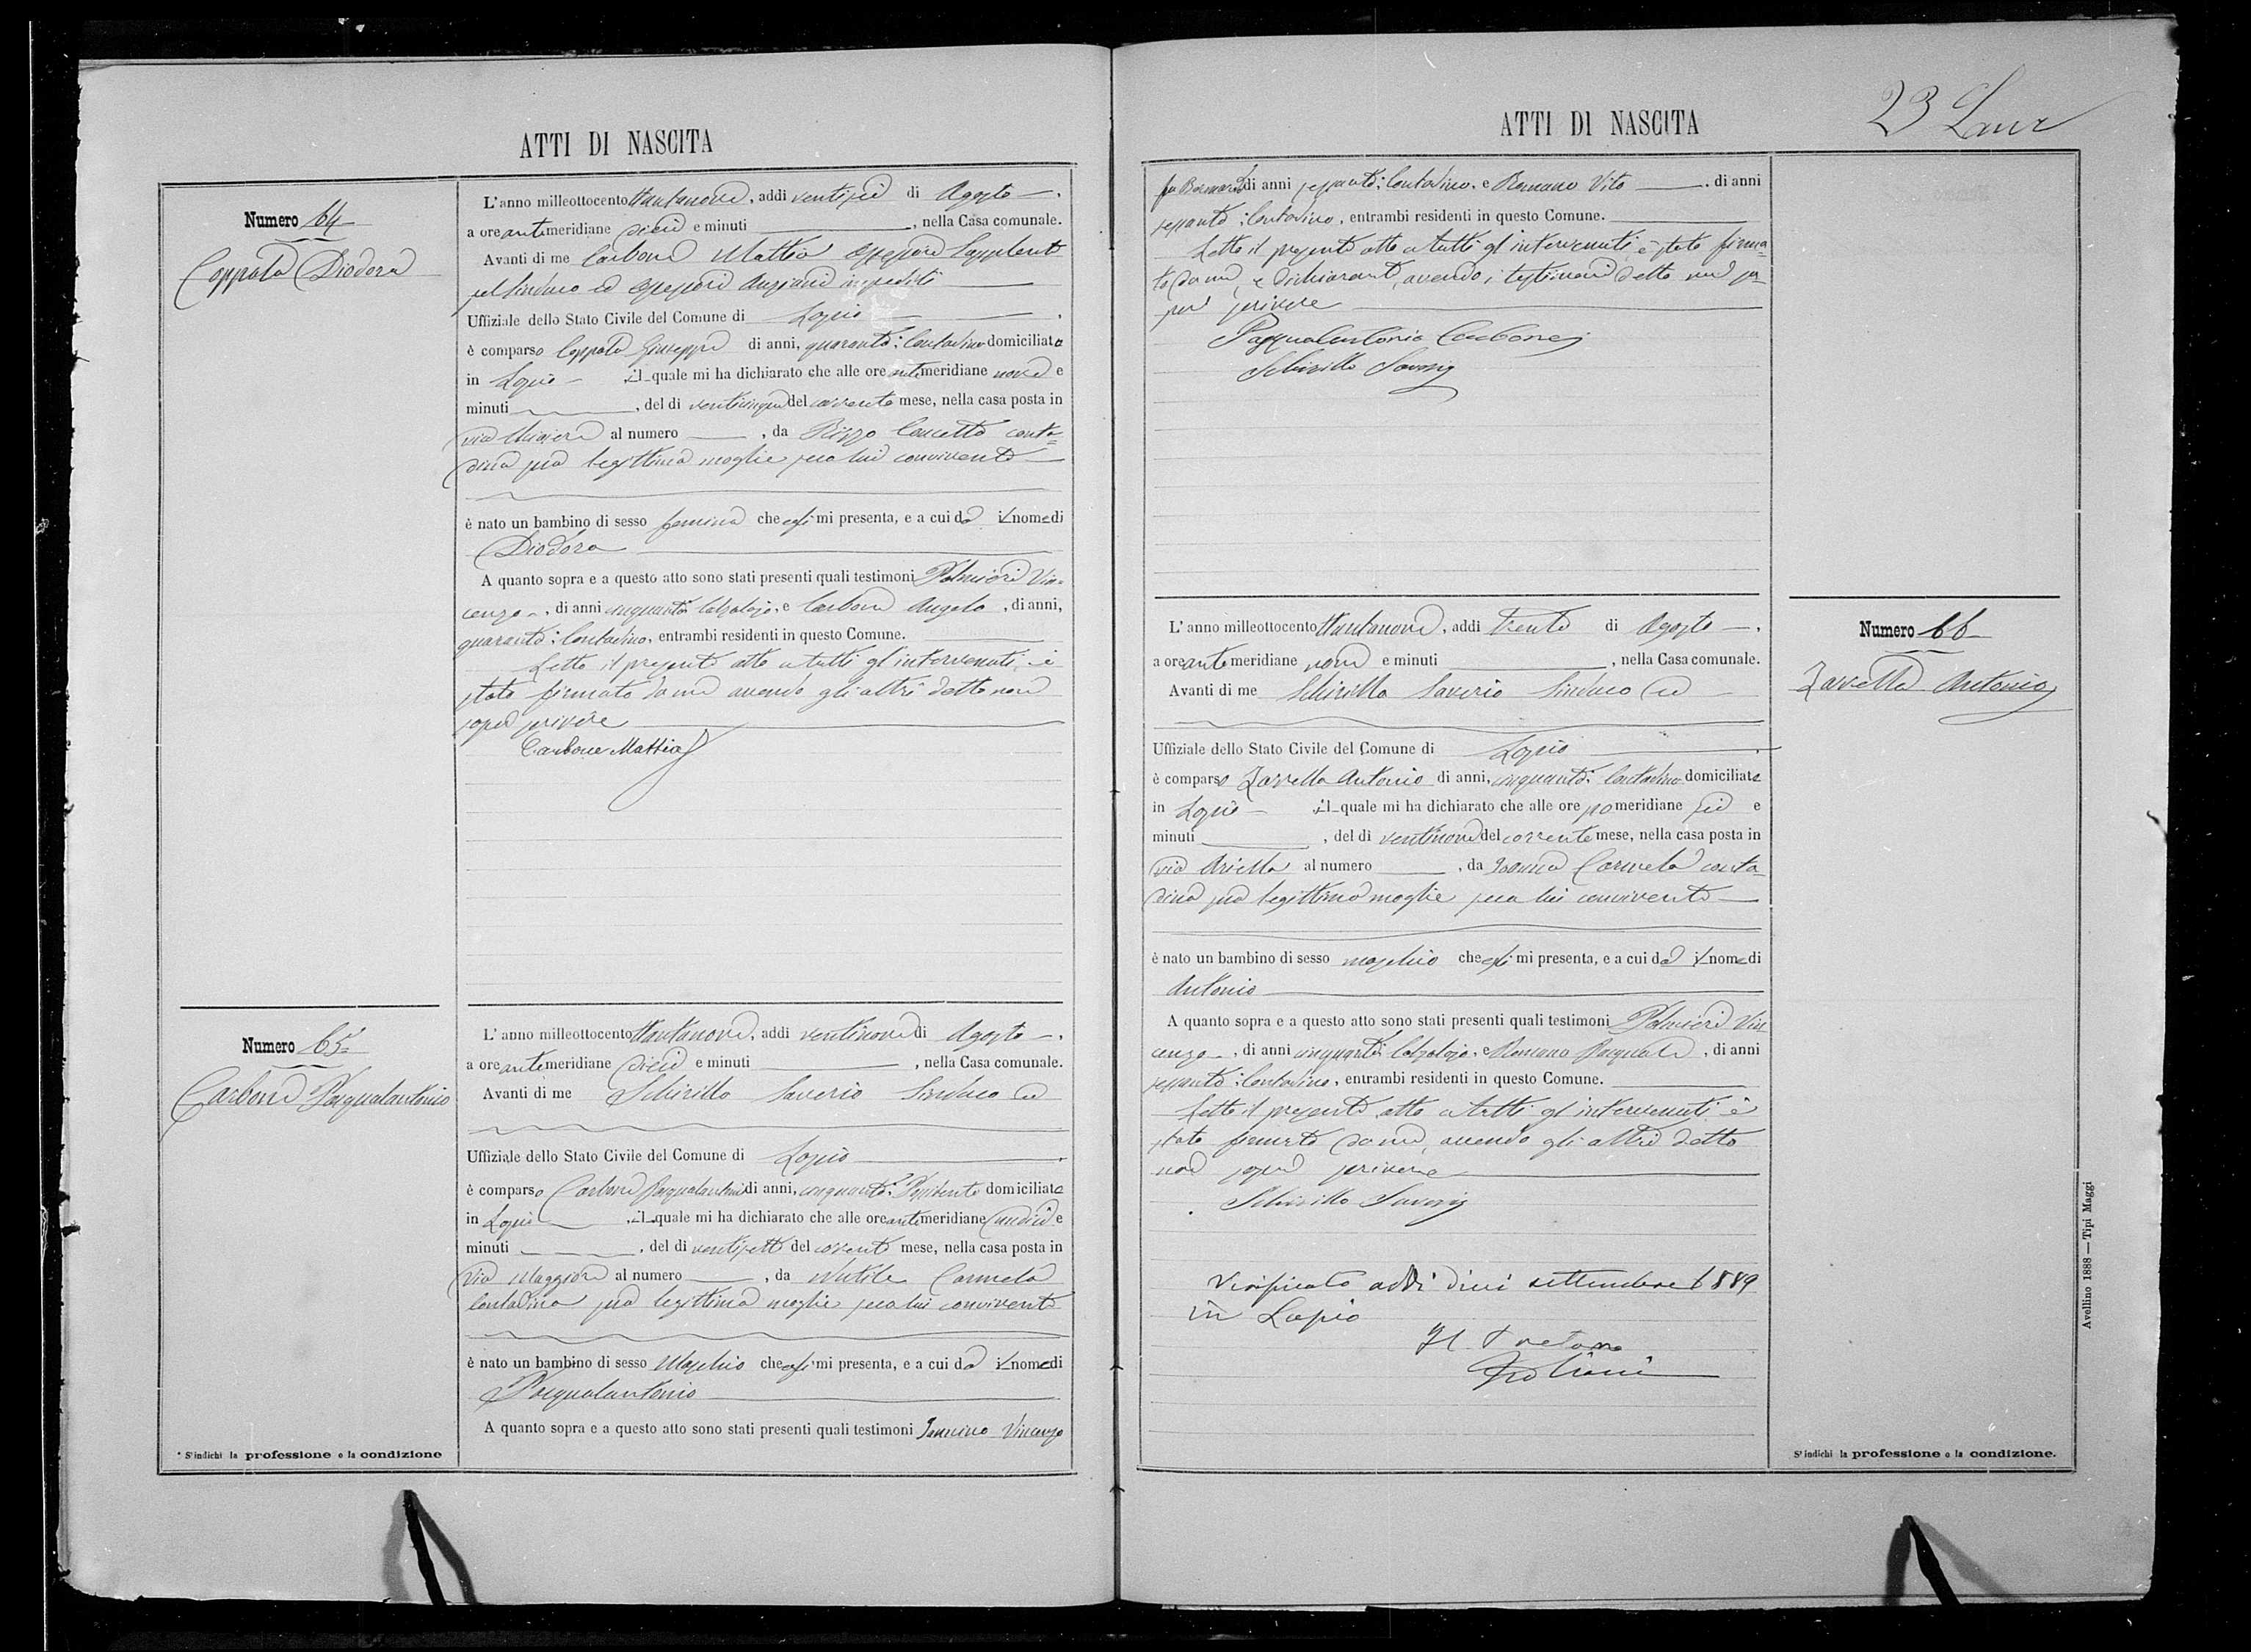 ATTI DI NASCITA
Numero 64
Coppola Diodora
L'anno milleottocento ottantanove, addì ventisei di Agosto
a ore antimeridiane dieci e minuti , nella Casa comunale.
Avanti di me Carbone Mattia Assessore Supplente
pel Sindaco ed Assessori Anziani impediti
Uffiziale dello Stato Civile del Comune di Lapio
è comparso Coppola Giuseppe di anni, quaranta: Contadino domiciliato
in Lapio il quale mi ha dichiarato che alle ore antimeridiane nove e
minuti , del dì venticinque del corrente mese, nella casa posta in
via al numero , da Rizzo Concetta conta=
dina sua legittima moglie seco lui convivente
è nato un bambino di sesso femina che egli mi presenta, e a cui dà il nome di
Diodora
A quanto sopra e a questo atto sono stati presenti quali testimoni Palmieri Vin=
cenzo, di anni cinquanta: Calzolajo, e Carbone Angelo, di anni,
quaranta: Contadino, entrambi residenti in questo Comune.
Letto il presente atto a tutti gl'intervenuti, è
stato firmato da me avendo gli altri detto non
saper scrivere
Carbone Mattia
Numero 65=
Carbone Pasqualantonio
L'anno milleottocento ottantanove, addì ventinove di Agosto
a ore antimeridiane dieci e minuti , nella Casa comunale.
Avanti di me Schirillo Saverio Sindaco ed
Uffiziale dello Stato Civile del Comune di Lapio
è comparso Carbone Pasqualantonio di anni, cinquanta: Possidente domiciliato
in Lapio , il quale mi ha dichiarato che alle ore antimeridiane undici e
minuti , del dì ventisette del corrente mese, nella casa posta in
Via Maggiore al numero , da Nutile Carmela
Contadina sua legittima moglie seco lui convivente
è nato un bambino di sesso Maschio che egli mi presenta, e a cui dà il nome di
Pasqualantonio
A quanto sopra e a questo atto sono stati presenti quali testimoni Iannino Vincenzo
* S'indichi la professione o la condizione
ATTI DI NASCITA
23
fu di anni sessanta: Contadino, e Romano Vito , di anni
sessanta: Contadino, entrambi residenti in questo Comune.
Letto il presente atto a tutti gl'intervenuti, è stato firma=
to da me, e dichiarante, avendo i testimoni detto non sa=
per scrivere
Pasqualantonio Carbone
Schirillo Saverio
L'anno milleottocento ottantanove, addì trenta di Agosto
a ore antimeridiane nove e minuti , nella Casa comunale.
Avanti di me Schirillo Saverio Sindaco ed
Uffiziale dello Stato Civile del Comune di Lapio
è comparso Zarrella Antonio di anni, cinquanta: Contadino domiciliato
in Lapio il quale mi ha dichiarato che alle ore pomeridiane sei e
minuti , del dì ventinove del corrente mese, nella casa posta in
via Ariella al numero , da Carmela conta=
dina sua legittima moglie seco lui convivente
è nato un bambino di sesso maschio che egli mi presenta, e a cui dà il nome di
Antonio
A quanto sopra e a questo atto sono stati presenti quali testimoni Palmieri Vin=
cenzo, di anni cinquanta: Calzolajo, e Romano Pasquale, di anni
sessanta: Contadino, entrambi residenti in questo Comune.
Letto il presente atto a tutti gl'intervenuti è
stato firmato da me, avendo gli altri detto
non saper scrivere
Schirillo Saverio
Verificato addì dieci settembre 1889
in Lapio
Il Pretore
Numero 66
Zarrella Antonio
S'indichi la professione o la condizione.
Avellino 1888 — Tipi Maggi